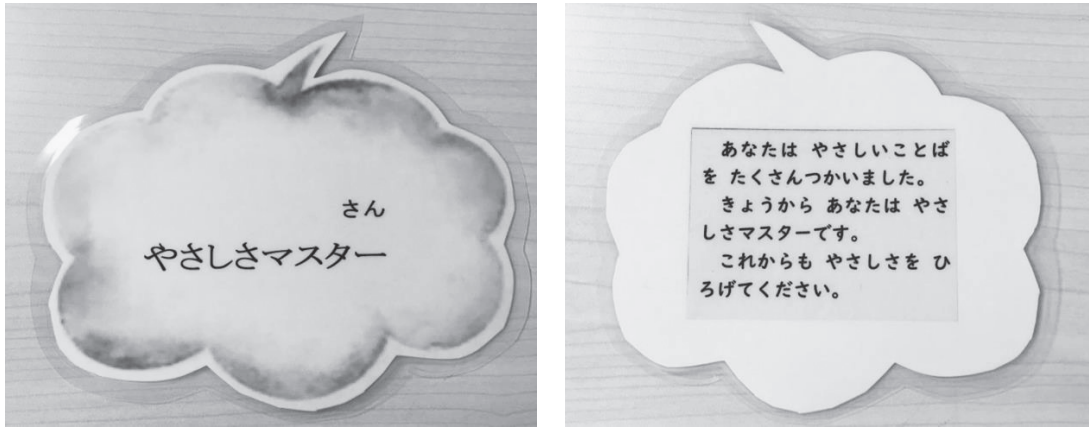 さん
やさしさマスター
あなたは やさしいことば
を たくさんつかいました。
きょうから あなたは やさ
しさマスターです。
これからも やさしさを ひ
ろげてください。